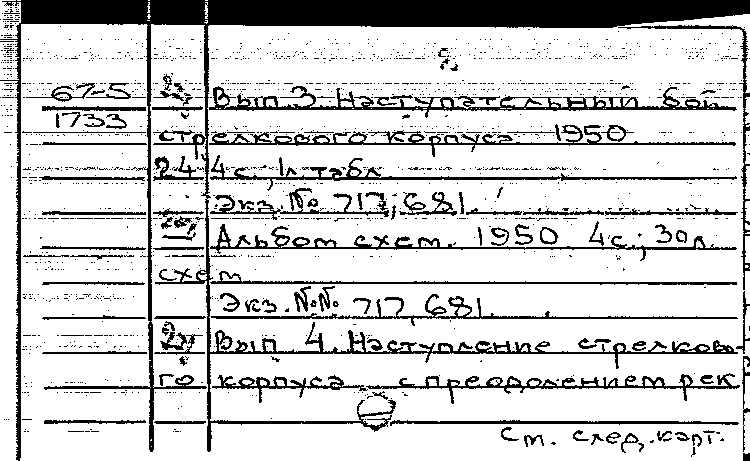 2.
67-5 Вып. 3. Наступательный бой
1733 стрелкового корпуса. 1950.
244 с.; 1л табл
Экз. № 717, 681.
Альбом схем. 1950 4с.; 30л.
схем
Экз. №№ 717, 681.
Вып. 4. Наступление стрелково-
го корпуса с преодолением рек
См. след. карт.